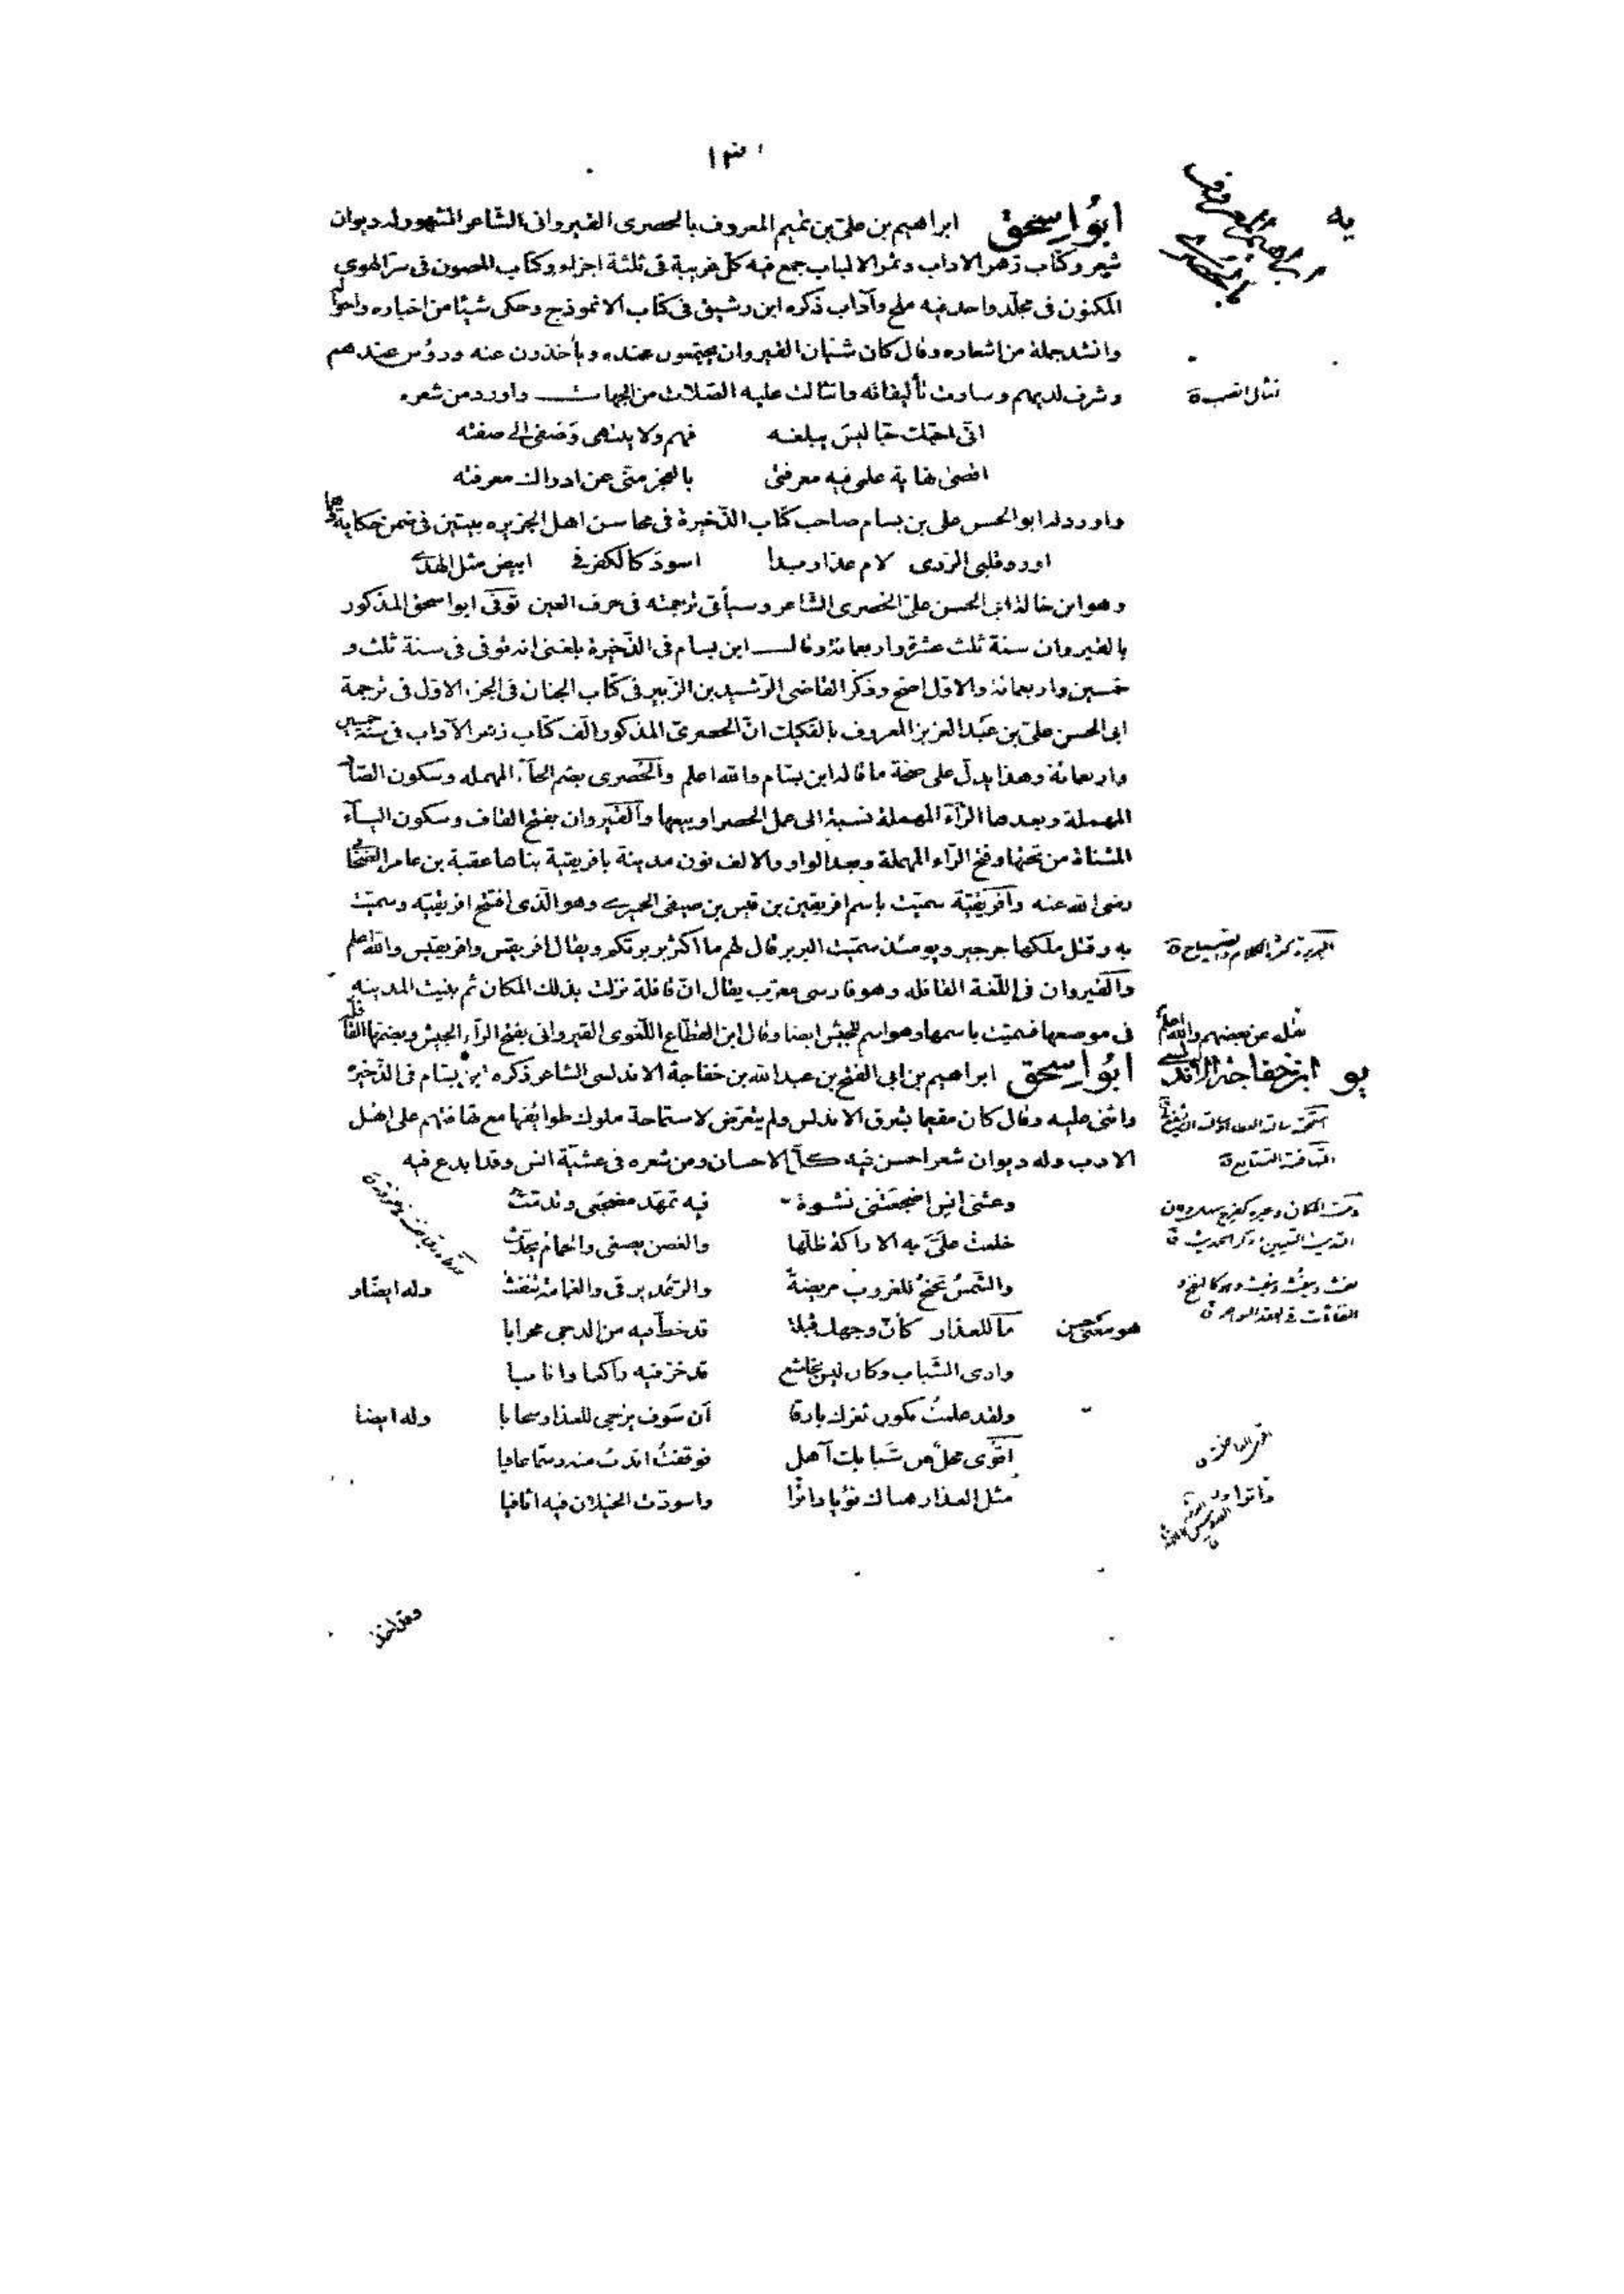 ١٣
ابو اسحق ابراهيم بن علىّ بن تميم المعروف بالحصرى القيروانى الشّاعر المشهور له ديوان
شعر وكتاب زهر الاداب وثمر الالباب جمع فيه كلّ غريبة فى ثلثة اجزاء وكتاب المصون فى سرّ الهوى
المكنون فى مجلّد واحد فيه ملح وآداب ذكره ابن رشيق فى كتاب الانموذج وحكى شيئا من اخباره واحواله
وانشد جملة من اشعاره وقال كان شبّان القيروان يجتمعون عنده ويأخذون عنه ورؤس عندهم
وشرف لديهم وسارت تأليفاته وانثالت عليه الصّلات من الجهات واورد من شعره
انّى احبّك حبّا ليس يبلغه فهم ولا ينتهى وَصفى الى صفته
اقصى نهاية علمى فيه معرفتى بالعجز منّى عن ادراك معرفته
واورد له ابو الحسن على بن بسام صاحب كتاب الذّخيرة فى محاسن اهل الجزيره بيتين فى ضمن حكاية وهما
اورد قلبى الرّدى لام عذار بدا اسود كالكفر فى ابيض مثل الهدى
وهو ابن خالة ابى الحسن علىّ الحصرى الشاعر وسيأتى ترجمته فى حرف العين توفّى ابو اسحق المذكور
بالقيروان سنة ثلث عشرة واربعمائة وقال ابن بسام فى الذّخيرة بلغنى انه توفى فى سنة ثلث و
خمسين واربعمائة والاوّل اصحّ وذكر القاضى الرّشيد بن الزّبير فى كتاب الجنان فى الجزء الاوّل فى ترجمة
ابى الحسن علىّ بن عبد العزيز المعروف بالفكيك انّ الحصرىّ المذكور الّف كتاب زهر الآداب فى سنة خمسين
واربعمائة وهذا يدلّ على صحّة ما قاله ابن بسّام والله اعلم والحُصرى بضم الحاء المهمله وسكون الصّاد
المهملة وبعدها الرّآء المهملة نسبة الى عمل الحصر او بيعها والقَيروان بفتح القاف وسكون اليآء
المثناة من تحتها وفتح الرّاء المهملة وبعد الواو والالف نون مدينة بافريقية بناها عقبة بن عامر الصّحابى
رضى الله عنه وافريقيّة سمّيت باسم افريقين بن قيس بن صيفى الحميرى وهو الّذى افتتح افريقيه وسمّيت
به وقتل ملكها جرجير ويومئذ سمّيت البربر قال لهم ما اكثر بربرتكم ويقال افريقس وافريقيس والله اعلم
والقيروان فى اللّغة القافله وهو فارسى معرّب يقال انّ قافلة نزلت بذلك المكان ثم بنيت المدينه
فى موضعها فسمّيت باسمها وهو اسم للجيش ايضا وقال ابن القطّاع اللّغوى القيروانى بفتح الرّاء الجيش وبضمّها القافلة
نقله عن بعضهم والله اعلم
ابو اسحق ابراهيم بن ابى الفتح بن عبد الله بن خفاجة الاندلسى الشاعر ذكره ابن بسّام فى الذّخيرة
واثنى عليه وقال كان مقيما بشرق الاندلس ولم يتعرّض لاستماحة ملوك طوائفها مع تهافتهم على اهل
الادب وله ديوان شعر احسن فيه كلّ الاحسان ومن شعره فى عشيّة انس وقد ابدع فيه
وعشىّ انس اضجعتنى نشوة فيه تمهّد مضجعى وتدمّث
خلعت علىّ به الاراكة ظلّها والغصن يصغى والحمام يحدّث
والشّمس تجنح للغروب مريضة والرّعد يرقى والغمامة تنفث وله ايضا و
هو معنى حسن ما للعذار كأنّ وجهك قبلة قد خطّ فيه من الدجى محرابا
وارى الشّباب وكان ليس بخاشع قد خرّ فيه راكعا وانابا
ولقد علمتُ بكون ثغرك بارقا أن سَوف يزجى للعذار سحابا وله ايضا
اقوى محلّ من شبابك آهل فوقفتُ اندب منه رسما عافيا
مثل العذار هناك نؤيا داثرا واسودّت الخيلان فيه اثافيا
يه
ابراهيم المعروف بالحصرى
يو ابن خفاجة الاندلسى
التهافت التتابع ق